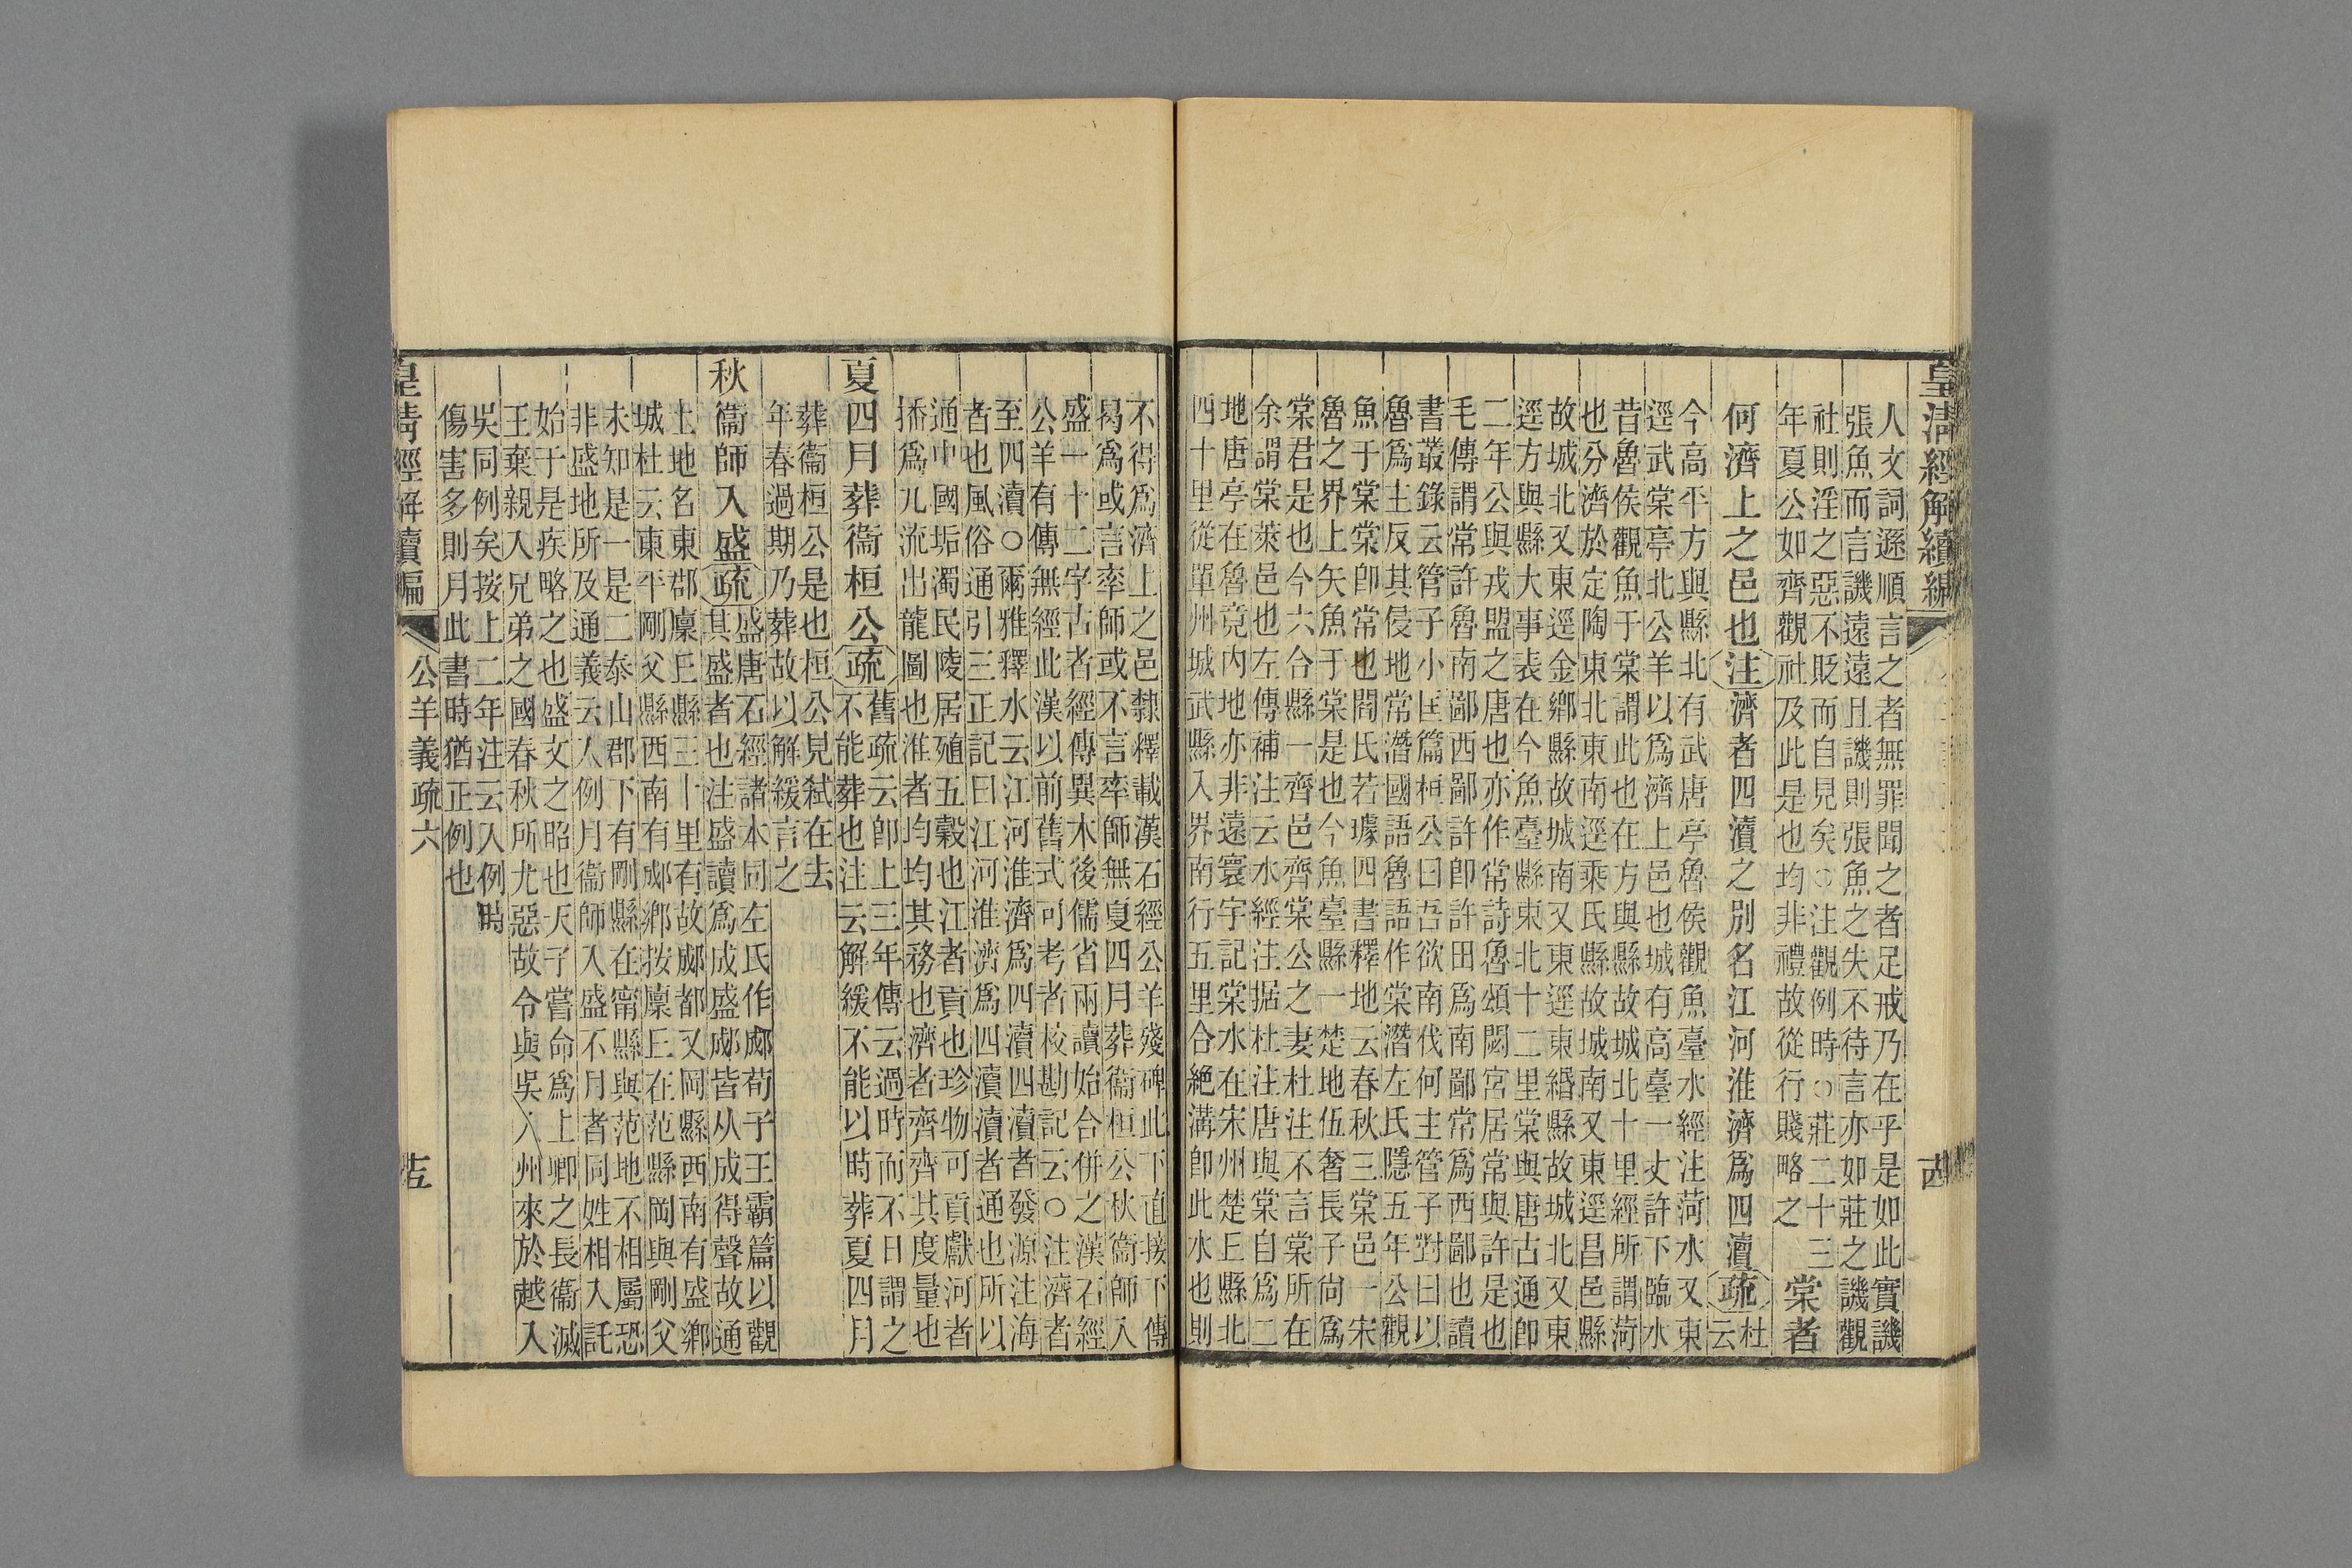 皇清經解續編
人文詞遜順言之者無罪聞之者足戒乃在乎是如此實譏
張魚而言譏遠遠且譏則張魚之失不待言亦如莊之譏觀
社則淫之惡不貶而自見矣○注觀例時○莊二十三
年夏公如齊觀社及此是也均非禮故從行賤略之
棠者
何濟上之邑也注濟者四瀆之別名江河淮濟爲四瀆疏杜
云
今高平方與縣北有武唐亭魯侯觀魚臺水經注菏水又東
逕武棠亭北公羊以爲濟上邑也城有高臺一丈許下臨水
昔魯侯觀魚于棠謂此也在方與縣故城北十里經所謂菏
也分濟於定陶東北東南逕乘氏縣故城南又東逕昌邑縣
故城北又東逕金鄉縣故城南又東逕東緡縣故城北又東
逕方與縣大事表在今魚臺縣東北十二里棠與唐古通卽
二年公與戎盟之唐也亦作常詩魯頌閟宮居常與許是也
毛傳謂常許魯南鄙西鄙許卽許田爲南鄙常爲西鄙也讀
書叢錄云管子小匡篇桓公曰吾欲南伐何主管子對曰以
魯爲主反其侵地常潛國語魯語作棠潛左氏隱五年公觀
魚于棠棠卽常也閻氏若璩四書釋地云春秋三棠邑一宋
魯之界上矢魚于棠是也今魚臺縣一楚地伍奢長子尙爲
棠君是也今六合縣一齊邑齊棠公之妻杜注不言棠所在
余謂棠萊邑也左傳補注云水經注据杜注唐與棠自爲二
地唐亭在魯竟內地亦非遠寰宇記棠水在宋州楚丘縣北
四十里從單州城武縣入界南行五里合絶溝卽此水也則
不得爲濟上之邑隸釋載漢石經公羊殘碑此下直接下傳
曷爲或言率師或不言率師無夏四月葬衞桓公秋衞師入
盛一十二字古者經傳異本後儒省兩讀始合併之漢石經
公羊有傳無經此漢以前舊式可考者校勘記云○注濟者
至四瀆○爾雅釋水云江河淮濟爲四瀆四瀆者發源注海
者也風俗通引三正記曰江河淮濟爲四瀆瀆者通也所以
通中國垢濁民陵居殖五穀也江者貢也珍物可貢獻河者
播爲九流出龍圖也淮者均均其務也濟者齊齊其度量也
夏四月葬衞桓公疏舊疏云卽上三年傳云過時而不日謂之
不能葬也注云解緩不能以時葬夏四月
葬衞桓公是也桓公見弒在去
年春過期乃葬故以解緩言之
秋衞師入盛疏盛唐石經諸本同左氏作郕荀子王霸篇以觀
其盛者也注盛讀爲成盛郕皆从成得聲故通
土地名東郡廩丘縣三十里有故郕都又岡縣西南有盛鄉
城杜云東平剛父縣西南有郕鄉按廩丘在范縣岡與剛父
未知是一是二泰山郡下有剛縣在甯縣與范地不相屬恐
非盛地所及通義云人例月衞師入盛不月者同姓相入託
始于是疾略之也盛文之昭也天子嘗命爲上卿之長衞滅
王棄親入兄弟之國春秋所尤惡故令與吳入州來於越入
吳同例矣按上二年注云入例時
傷害多則月此書時猶正例也
皇清經解續編
公羊義疏六